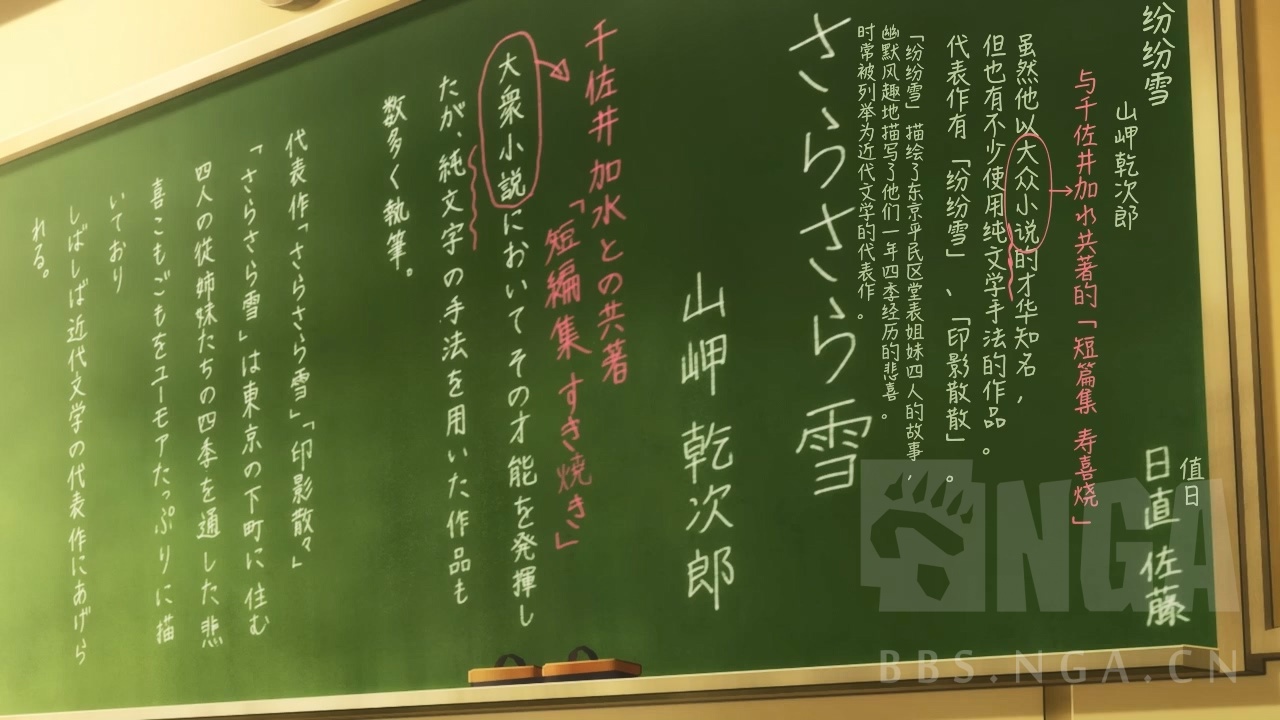 纷纷雪
山岬乾次郎
与千佐井加水共著的「短篇集 寿喜烧」
虽然他以大众小说的才华知名，
但也有不少使用纯文学手法的作品。
代表作有「纷纷雪」、「印影散散」。
「纷纷雪」描绘了东京平民区堂表姐妹四人的故事，
幽默风趣地描写了他们一年四季经历的悲喜。
时常被列举为近代文学的代表作。
值日
日直 佐藤
さらさら雪
山岬 乾次郎
千佐井加水との共著
「短編集 すき焼き」
大衆小説においてその才能を発揮し
たが、純文字の手法を用いた作品も
数多く執筆。
代表作「さらさら雪」「印影散々」
「さらさら雪」は東京の下町に住む
四人の従姉妹たちの四季を通した悲
喜こもごもをユーモアたっぷりに描
いており
しばしば近代文学の代表作にあげら
れる。
NGA
BBS.NGA.CN